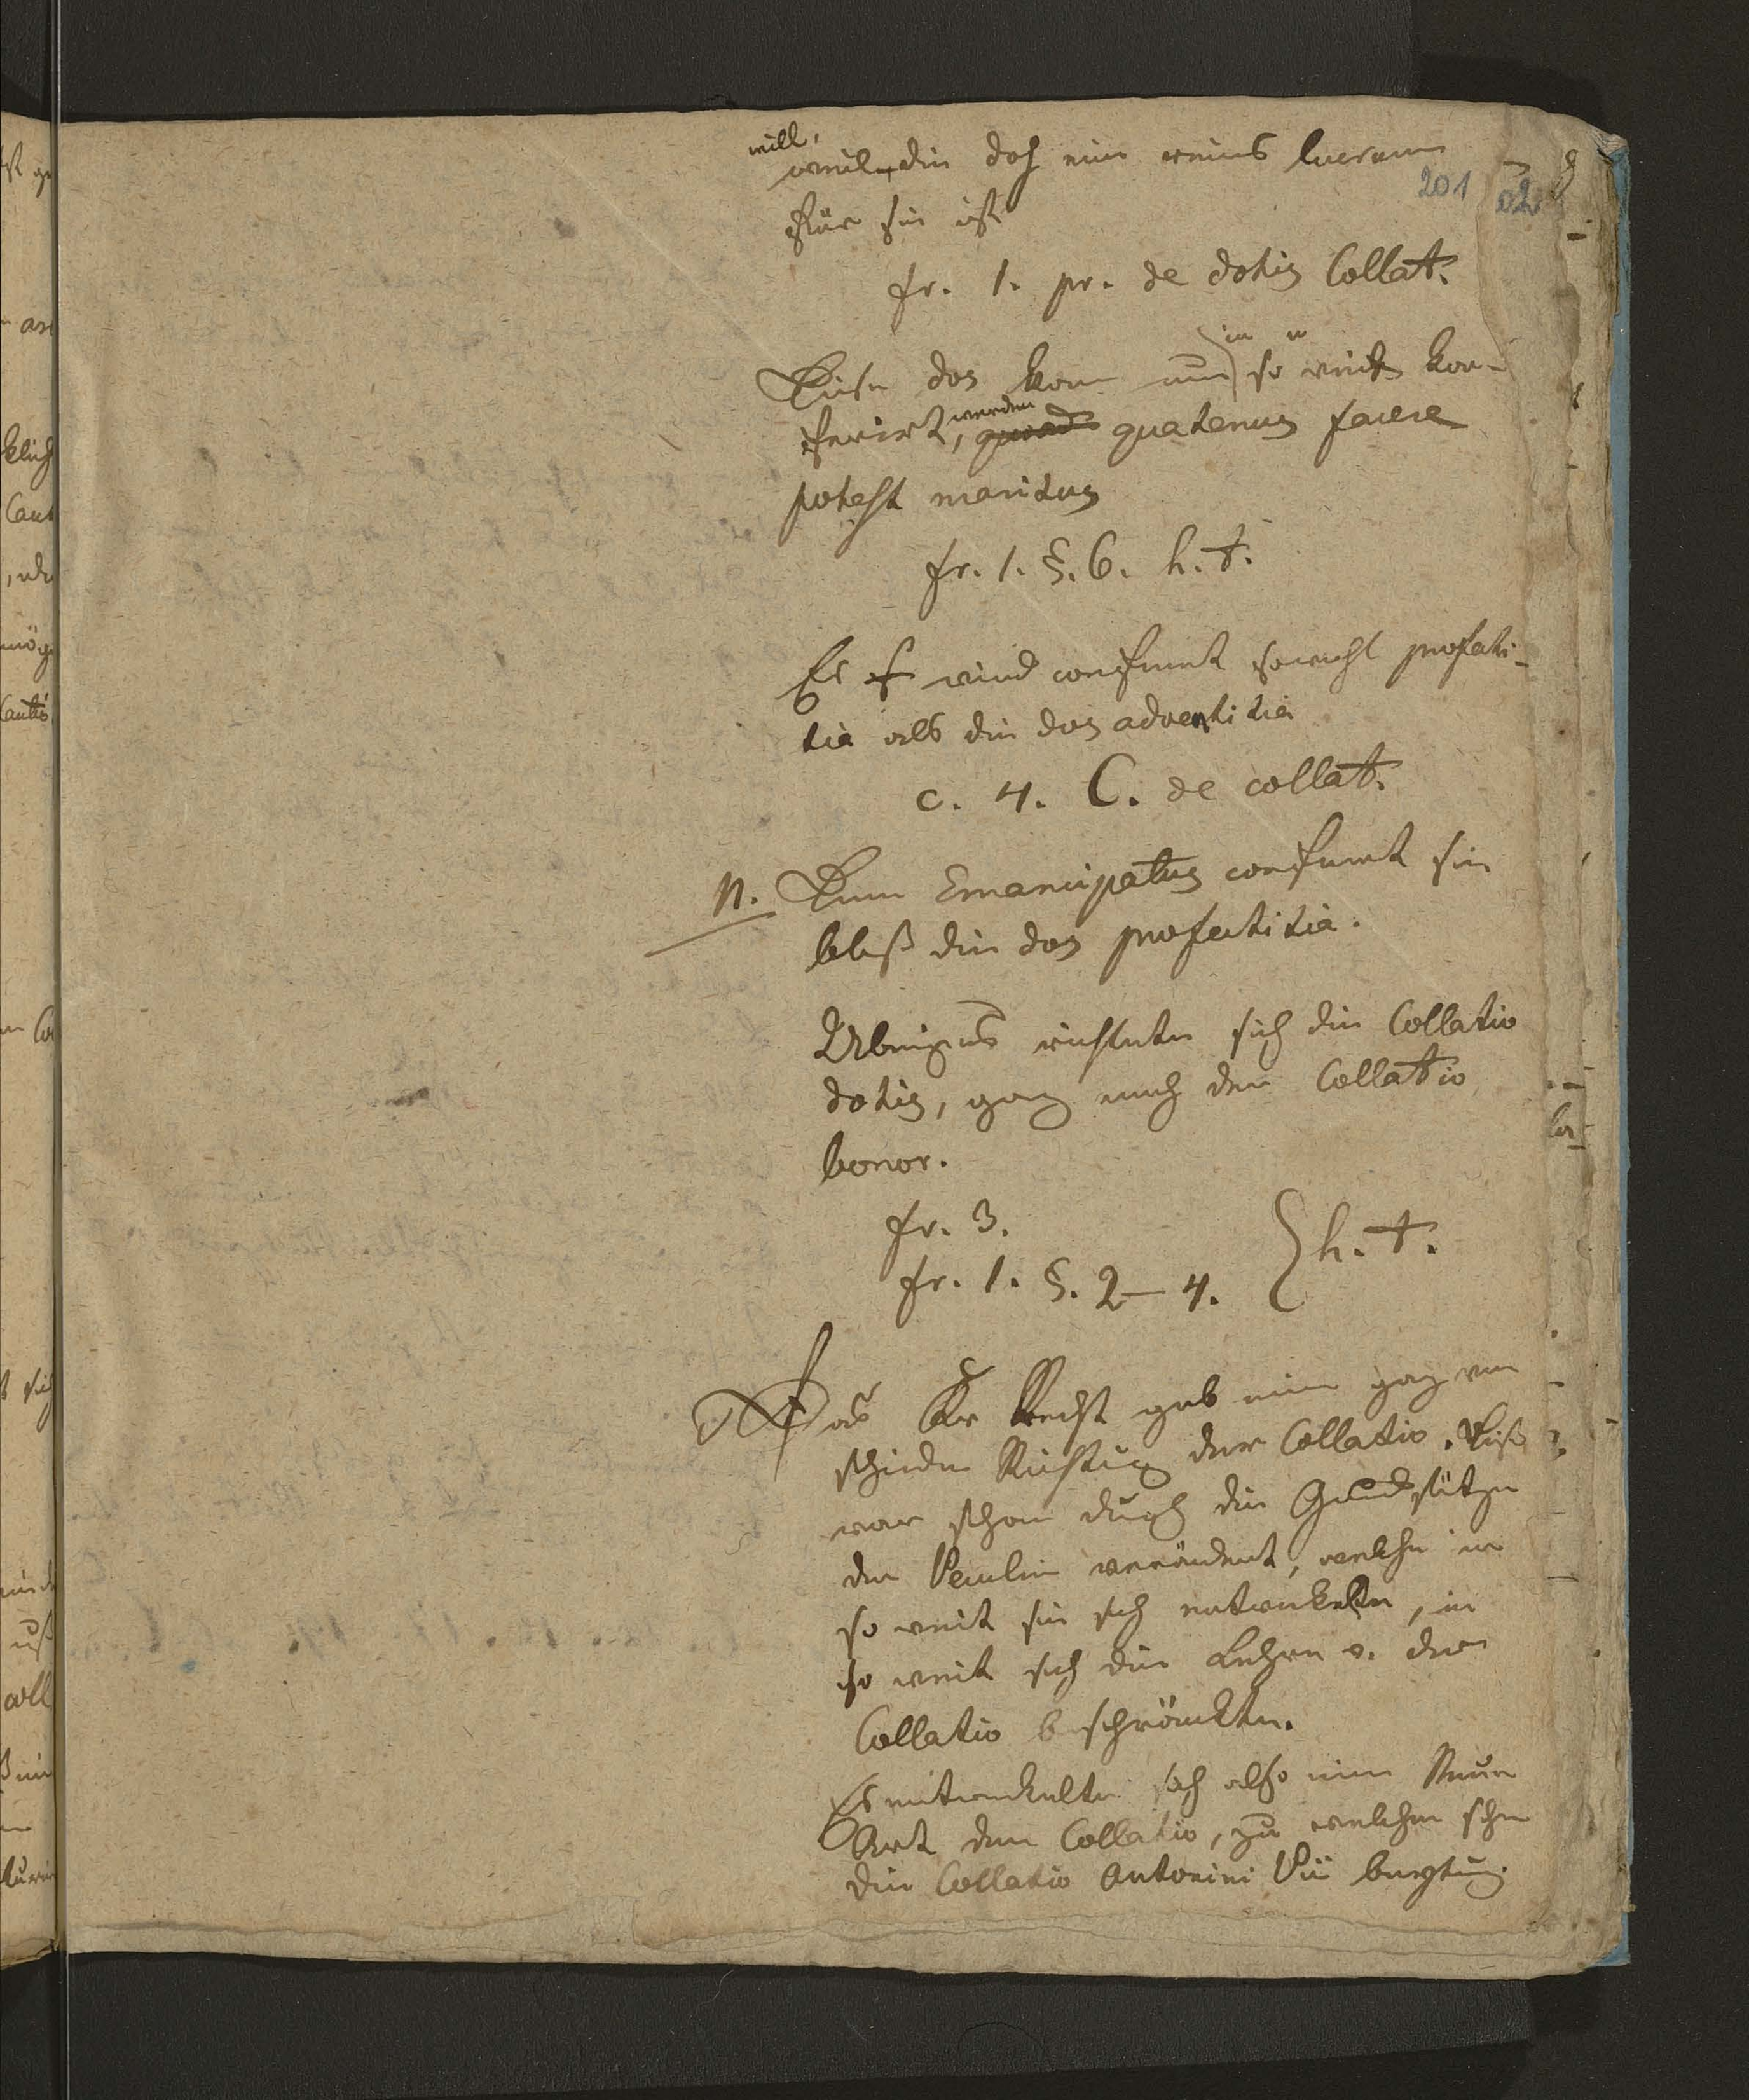 will,
weil die doch ein reines lucrum
201
für sie ist
fr. 1. pr. de dotis Collat.
in
Diese dos kann nur so weit kon-
ferirt, werden quoad quatenus facere
potest maritus
fr. 1. §. 6. h. t.
Es wird conferirt sowohl profecti-
tia als die dos adventitia
c. 4. C. de collat.
N. Dem Emancipatus conferirt sie
bloß die dos profectitia.
Uebrigens richtete sich die Collatio
dotis, ganz nach der Collatio
bonor.
fr. 3.
fr. 1. §. 2-4. } h. t.
Das Recht gab eine ganz ver
schiedne Richtung der Collatio. Dieß
war schon durch die Grundsätze
der Peculien verändert, welche in
so weit sie sich entwickelten, in
so weit sich die Lehre v. der
Collatio beschränkte.
Es entwickelte sich also eine Neue
Art der Collatio, zu welcher schon
die Collatio Antonini Pii